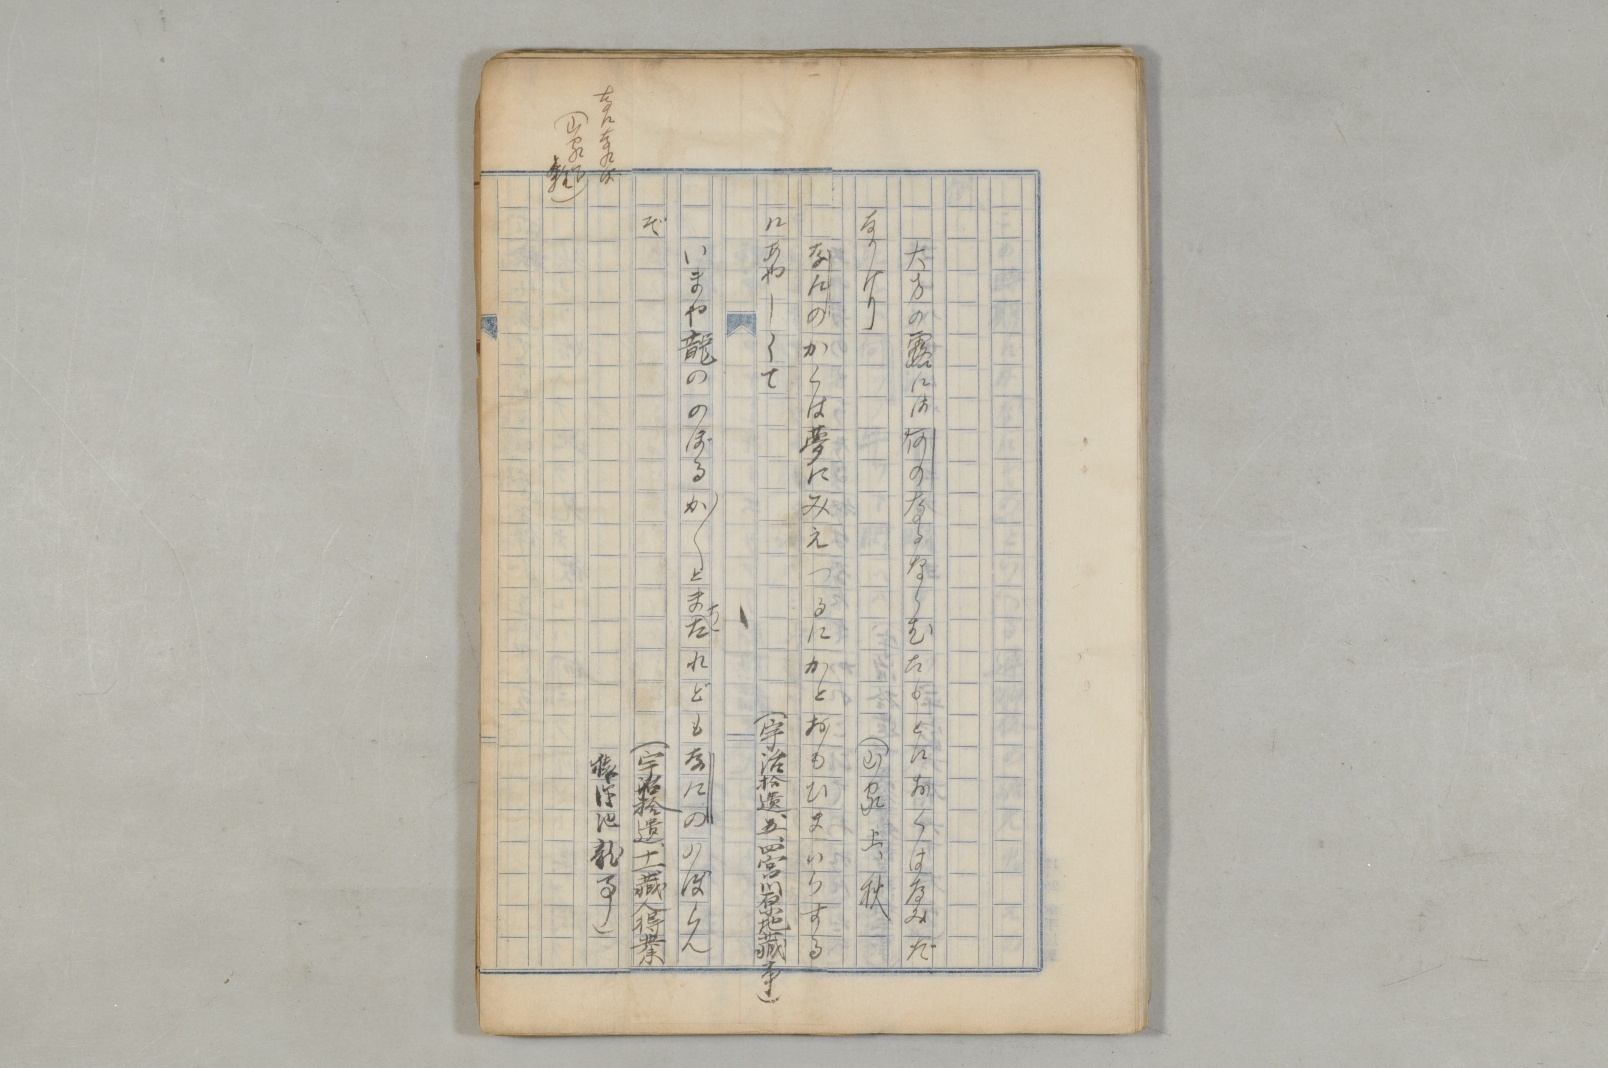 大方の露には何のなるならむたもとにおくはなみだ
なりけり
(山家上、秋
なにのかくは夢にみえつるにかとおもひまいらする
にあやしくて
(宇治拾遺五、四宮河原地藏事)
いまや龍ののぼるか〳〵とまたれどもなにののぼらん
ぞ
(宇治拾遺十一、藏人得業
猿澤池龍事)
(山家下、
雜)